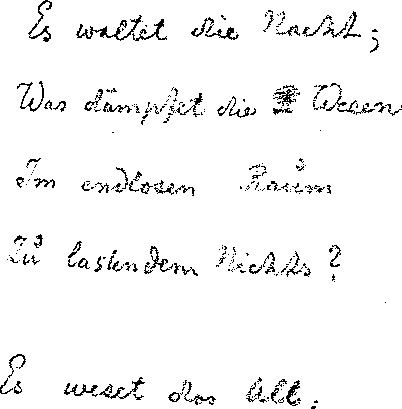 Es waltet die Nacht;
Was dämpfet die Wesen
Im endlosen Raum
Zu lastendem Nichts?
Es weset das All: